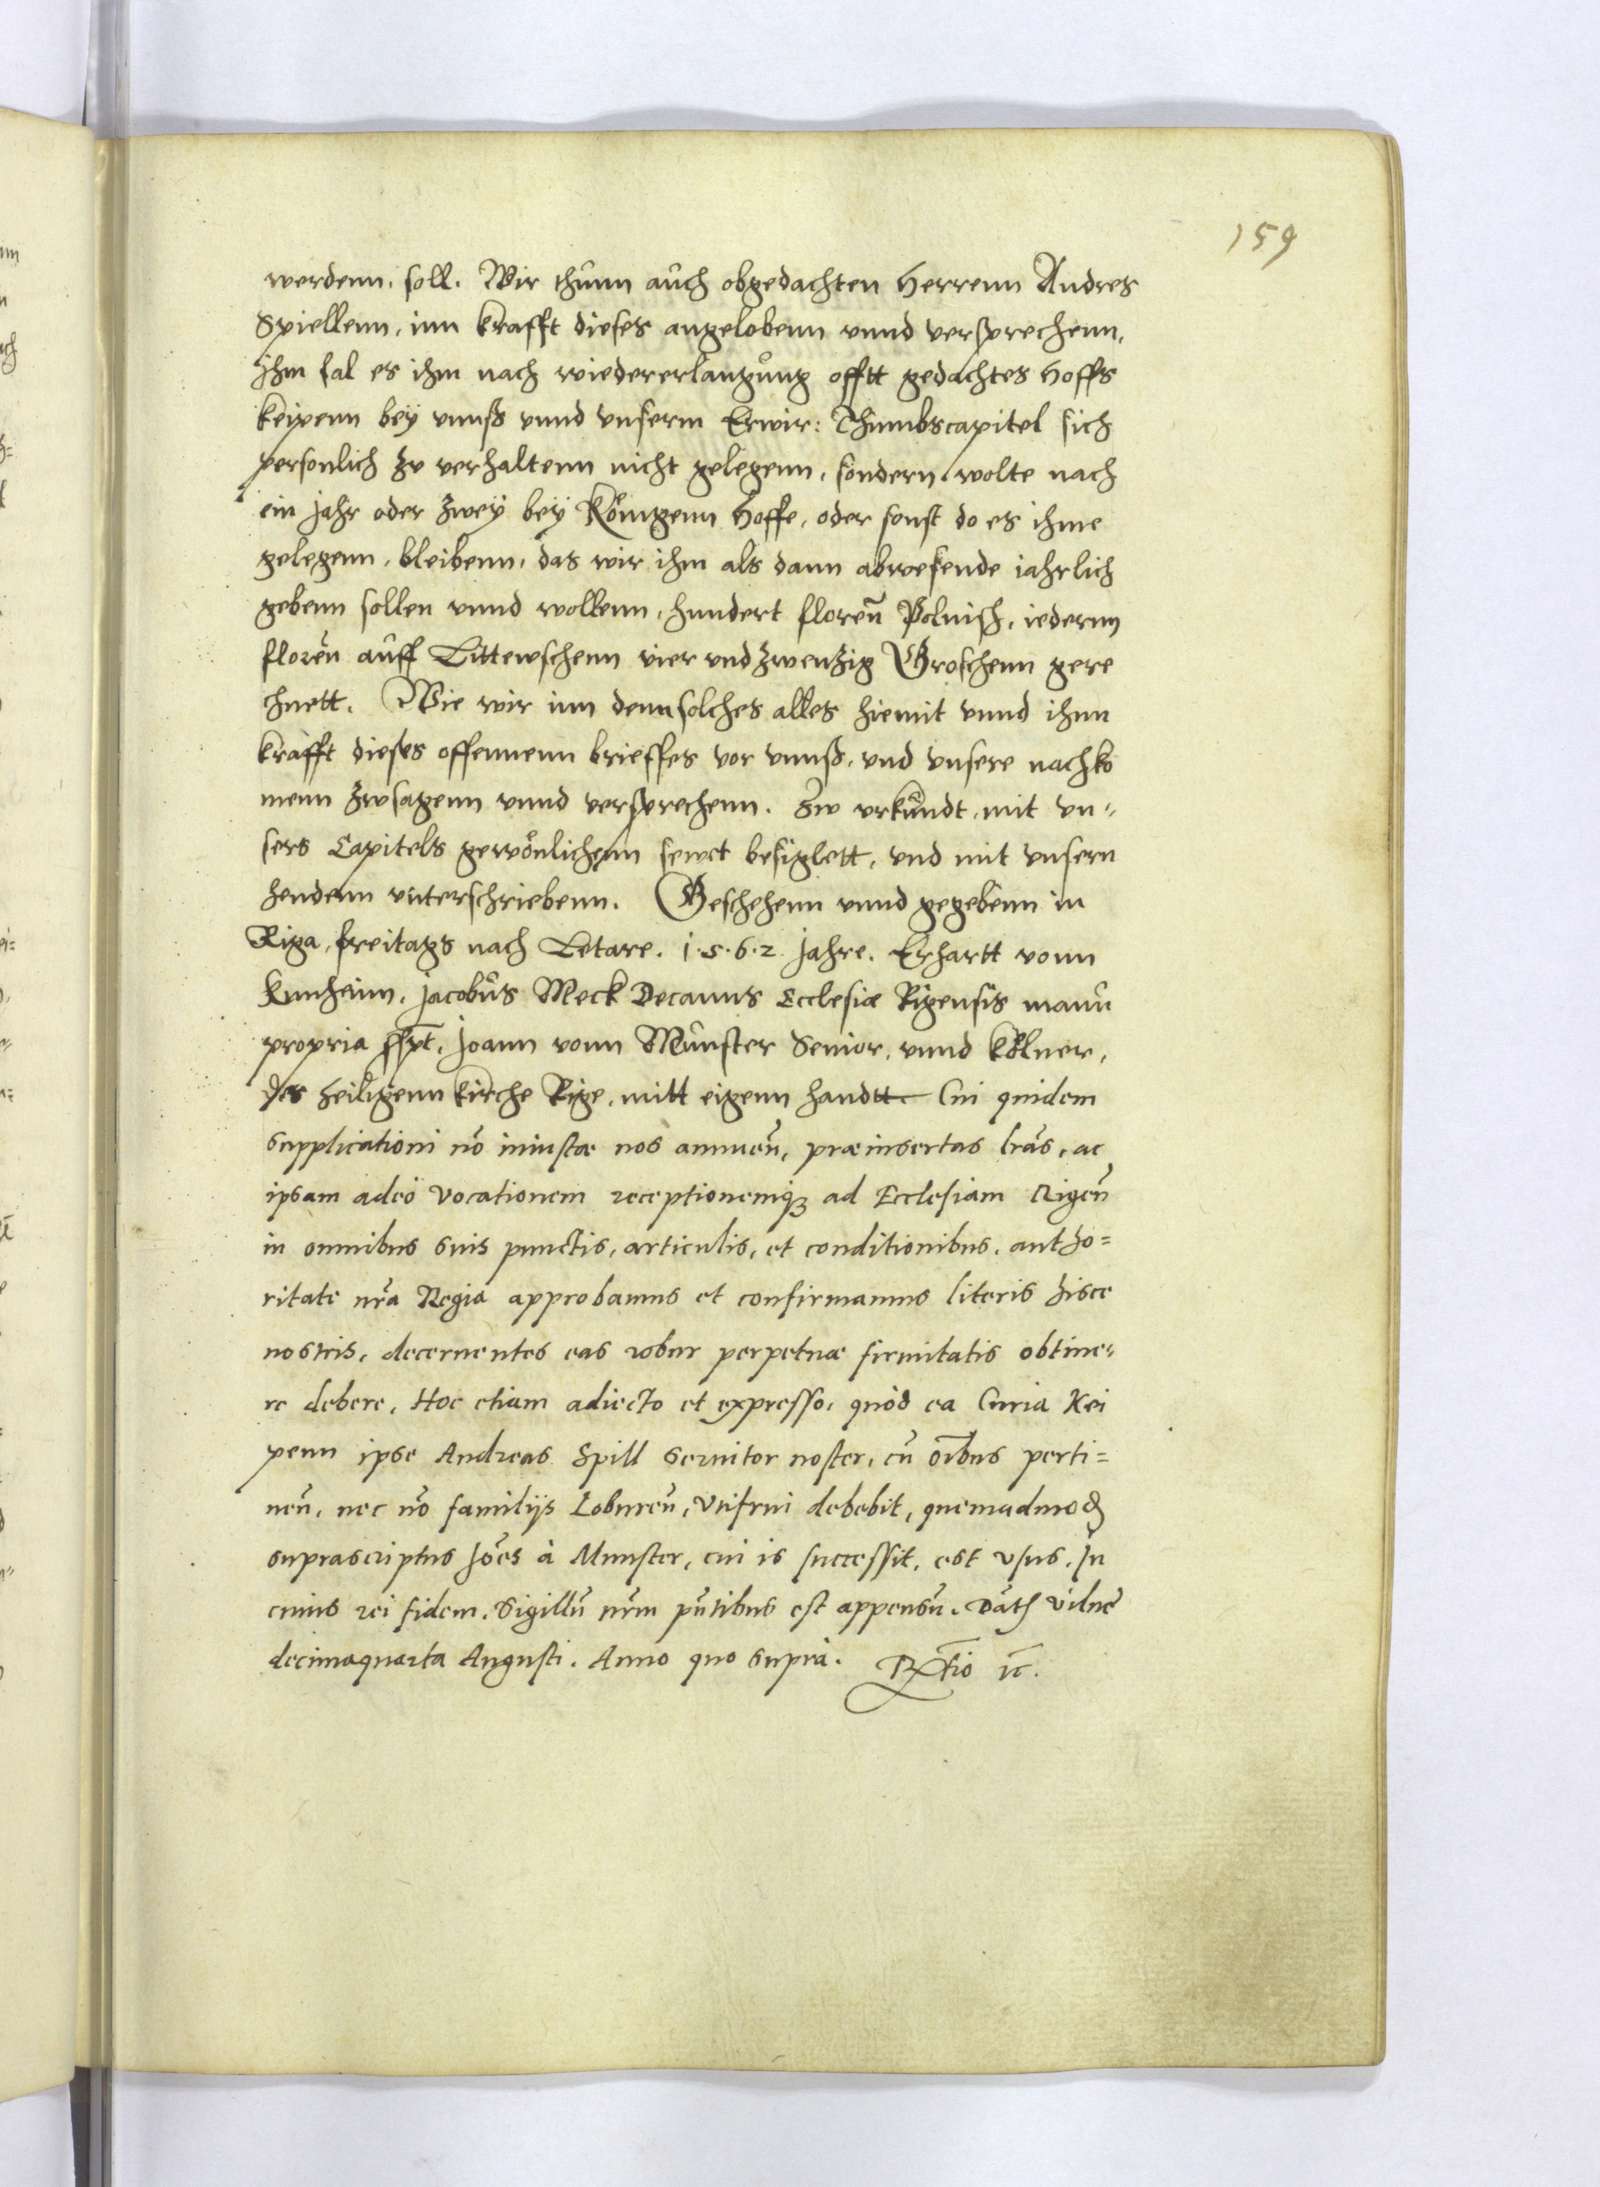 159
werdenn. soll. Wir thunn auch obgedachten Herrenn Andres
Spiellenn, inn krafft dieses angelobenn vnnd versprechenn,
Ihm fal es ihm nach wiedererlangung offtt gedachtes Hoffs
keipenn bey vnnß vnnd vnserm Erwir: Thumbscapitel sich
personlich zu verhaltenn nicht gelegenn, sondern wolte nach
ein jahr oder zwey bey Königenn Hoffe, oder sonst do es ihme
gelegenn, bleibenn, das wir ihm als dann abwesende iahrlich
gebenn sollen vnnd wollenn, hundert florenn Polnisch, iedernn
florēn auff Littewschenn vier vnd zwenzig Groschenn gere
chnett. Wie wir inn denn solches alles hiemit vnnd ihnn
krafft dieses offennenn brieffes vor vnnß, vnd vnsere nachko
menn zwsagenn vnnd versprechenn. Zw vrkundt, mit vn„
sers Capitels gewönlichenn besiglett, vnd mit vnsern
hendenn vnterschriebenn. Geschehenn vnnd gegebenn in
Riga, freitags nach Letare. 1·5·6·2 jahre. Erhartt vonn
Kunheim, Jacobus Meck Decanus Ecclesiæ Rigensis manu
propria sspt, Joann vonn Munster Senior, vnnd Kölner,
der heiligenn kirche Rige, mitt eigenn handtt Cui quidem
supplicationi nō iniustæ nos annuen̄, præinsertas lrās, ac
ipsam adeò vocationem receptionemq̃ ad Ecclesiam Rigen̄
in omnibus suis punctis, articulis, et conditionibus, autho=
ritate nr̄a Regia approbamus et confirmamus literis hisce
nostris, decernentes eas robur perpetuæ firmitatis obtine„
re debere, Hoc etiam adiecto et expresso, quòd ea Curia Kei
penn ipse Andreas Spill seruitor noster, cū oībus perti=
nen̄, nec nō familijs Loburen̄, vtifrui debebit, quemadmodꝫ
suprascriptus Joēs à Munster, cui is successit, est vsus. In
cuius rei fidem, Sigillū nr̄m pn̄tibus est appensū. Dat Vilnæ
decimaquarta Augusti. Anno quo suprà. Rtio